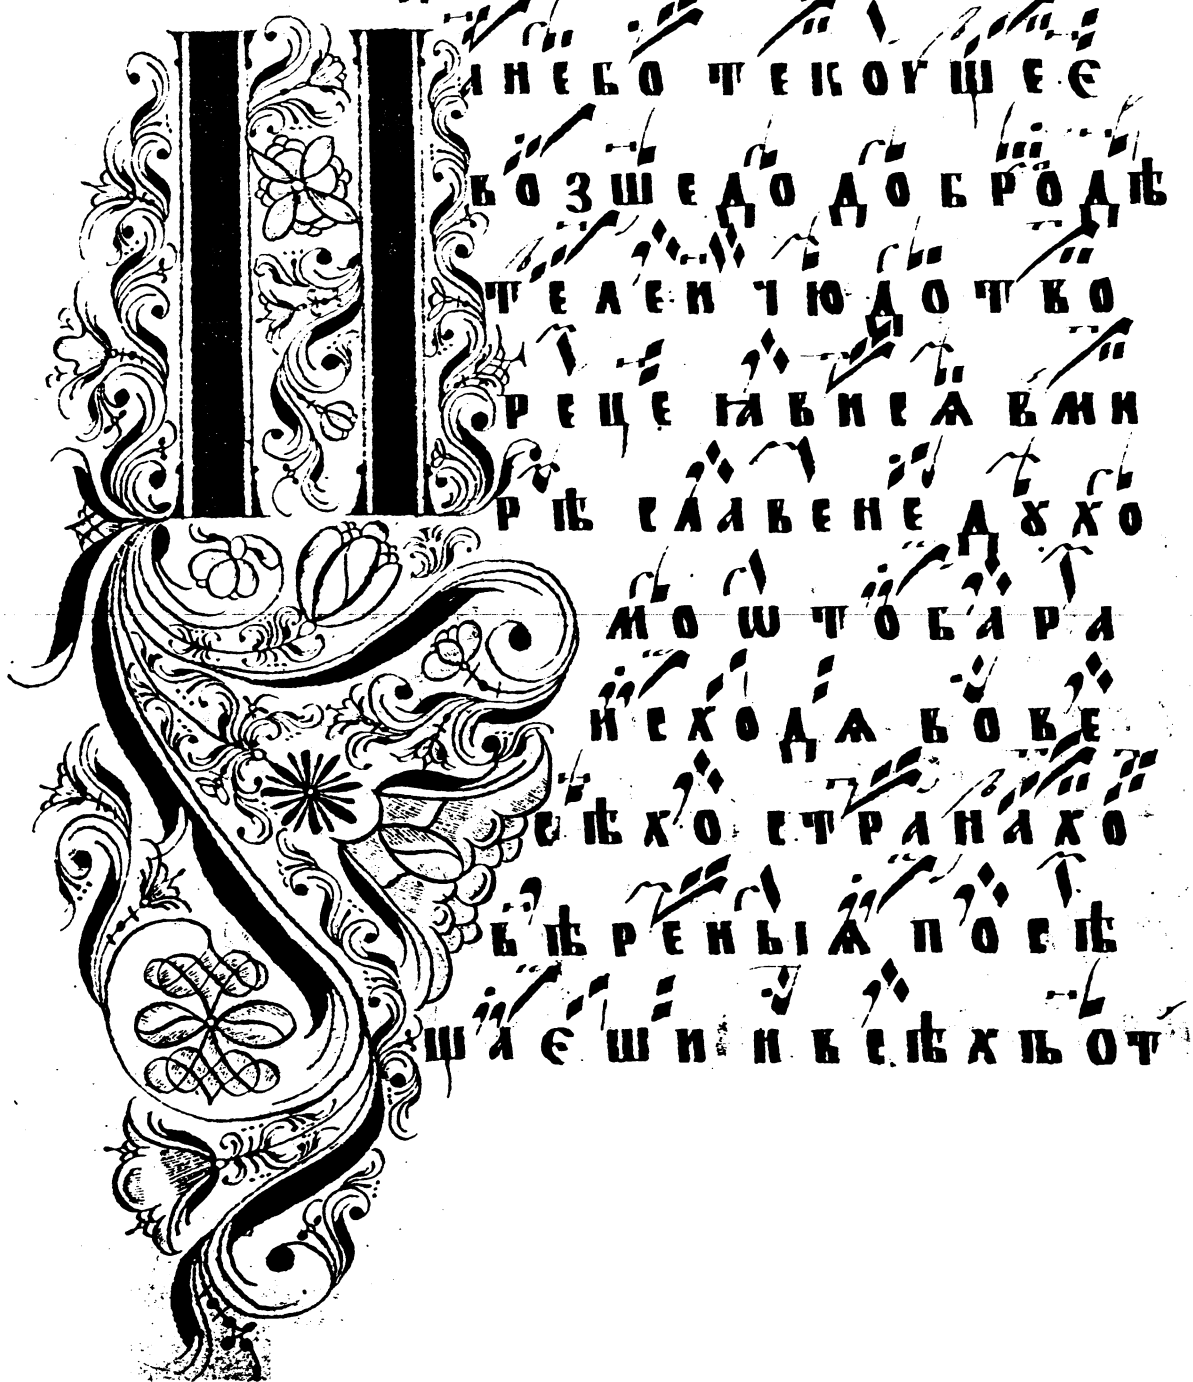 ꙗ НЕБО ТЕКꙊШЕЕ
ВОЗШЕДО ДОБРОДѢ
ТЕЛЕИ ЧЮДОТВО
РЕЦЕ ꙖВИСѦ ВМИ
РѢ СЛАВЕНЕ ДꙊХО
МО ѠТОБАРА
ИСХОДѦ ВОВЕ
СѢХО СТРАНАХО
ВѢРЕНЫѦ ПОСѢ
ЩАЕШИ И ВСѢХЪ ОТ